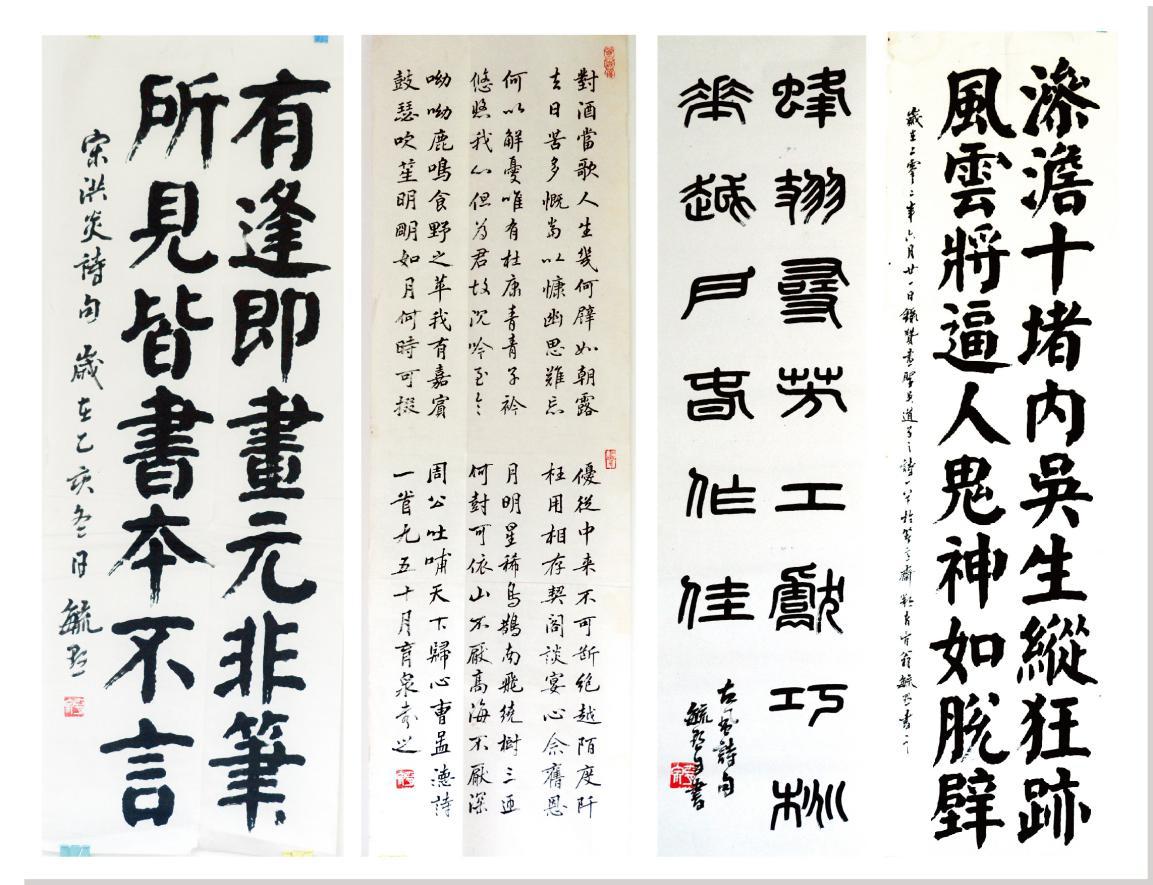 滲澹十堵内吳生縱狂跡
風雲將逼人鬼神如脫壁
歲在二零二年六月廿一日錄贊畫聖吳道子之詩一首於 齋 毓 書
蜂 尋芳工獻巧桃
花越戶春作佳
古風詩句
毓 書
對酒當歌人生幾何譬如朝露
去日苦多慨當以慷幽思難忘
何以解憂唯有杜康青青子衿
悠悠我心但為君故沉吟至今
呦呦鹿鳴食野之苹我有嘉賓
鼓瑟吹笙明明如月何時可掇
優從中来不可斷絕越陌度阡
枉用相存契闊談宴心念舊恩
月明星稀烏鵲南飛繞樹三匝
何對可依山不厭高海不厭深
周公吐哺天下歸心曹孟德詩
一首九五十月育泉書之
有逢即畫元非筆
所見皆書本不言
宋洪炎詩句 歲在乙亥冬日 毓